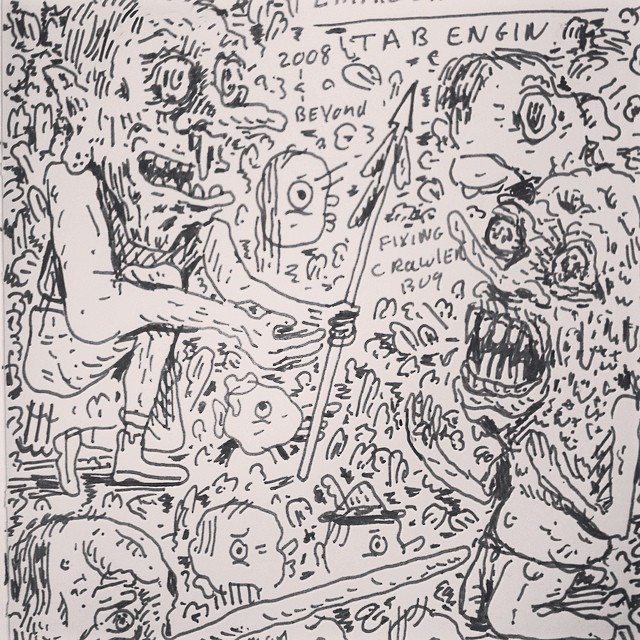 TAB ENGIN
2008
&
BEYOND
FIXING
CRAWLER
BUG